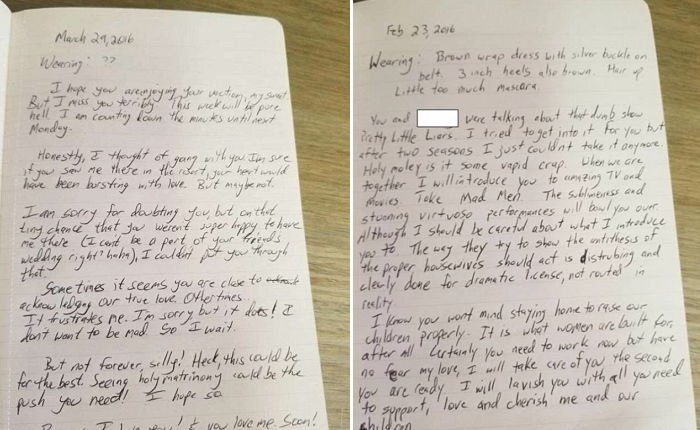 March 29, 2016
Wearing: ??
I hope you are enjoying your vaction, my sweet
But I miss you terribly. This week will be pure
hell. I am counting down the minutes until next
Monday.
Honestly, I thought of going with you. I'm sure
if you saw me there in the resort, your heart would
have been bursting with love. But maybe not.
I am sorry for doubting you, but on that
tiny chance that you werent super happy to have
me there (I cant be a part of your friend's
wedding right? haha), I couldnt put you through
that.
Sometimes it seems you are close to
acknowledging our true love. Other times...
It frustrates me. I'm sorry but it does! I
dont want to be mad. So I wait.
But not forever, silly! Heck, this could be
for the best. Seeing holy matrimony could be the
push you need! I hope so.
you love me. Soon!
Feb 23, 2016
Wearing: Brown wrap dress with silver buckle on
belt. 3 inch heels also brown. Hair up
Little too much mascara.
You and were talking about that dumb show
Pretty Little Liars. I tried to get into it for you but
after two seasons I just couldnt take it anymore.
Holy moley is it some vapid crap. When we are
together I will introduce you to amazing TV and
Movies. Take Mad Men. The sublimeness and
stunning virtuoso performances will bowl you over.
Although I should be careful about what I introduce
you to. The way they try to show the antithesis of
the proper housewives should act is distrubing and
clearly done for dramatic license, not routed in
reality.
I know you wont mind staying home to raise our
children properly. It is what women are built for,
after all. Certainly you need to work now but have
no fear my love, I will take care of you the second
you are ready. I will lavish you with all you need
to support, love and cherish me and our
children